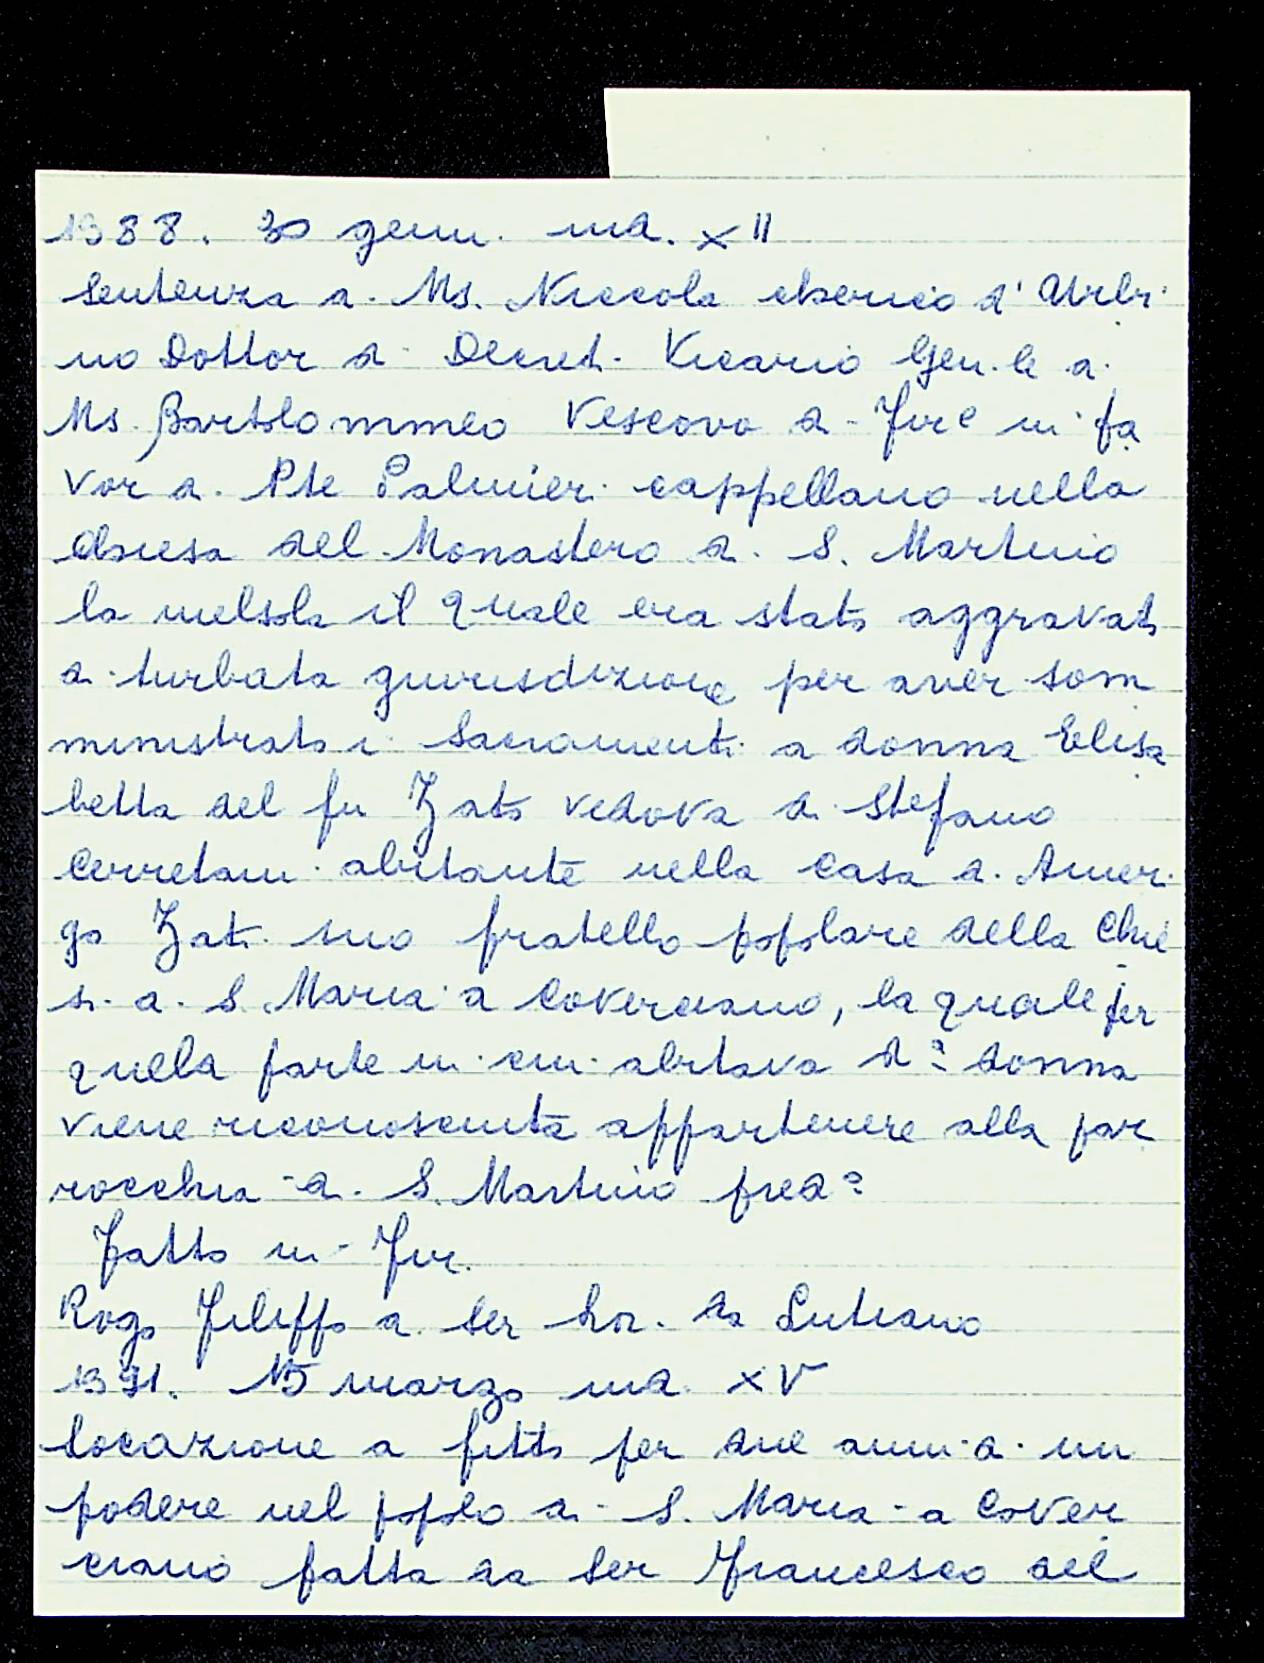 1388. 30 genn. ind. XII
Sentenza di Ms. Niccola cherico d'Urbi
no Dottor di Decret. Vicario Gen.le di
Ms. Bartolommeo Vescovo di Fire in fa
vor di Pte Palmieri cappellano nella
chiesa del Monastero di S. Martino
la melsola il quale era stato aggravato
di turbata giurisdizione per aver som
ministrato i Sacramenti a donna Elisa
betta del fu Zato vedova di Stefano
Cerretani abitante nella casa di Ameri
go Zati suo fratello popolare della Chie
sa di S. Maria a Coverciano, la quale per
quella parte in cui abitava da donna
viene riconosciuta appartenere alla par
rocchia di S. Martino preda
Fatto in Fir.
Rogo Filippo di Ser Lor. da Lutiano
1391. 15 marzo ind. XV
Locazione a fitto per due anni di un
podere nel popolo di S. Maria a Cover
ciano fatta da Ser Francesco del